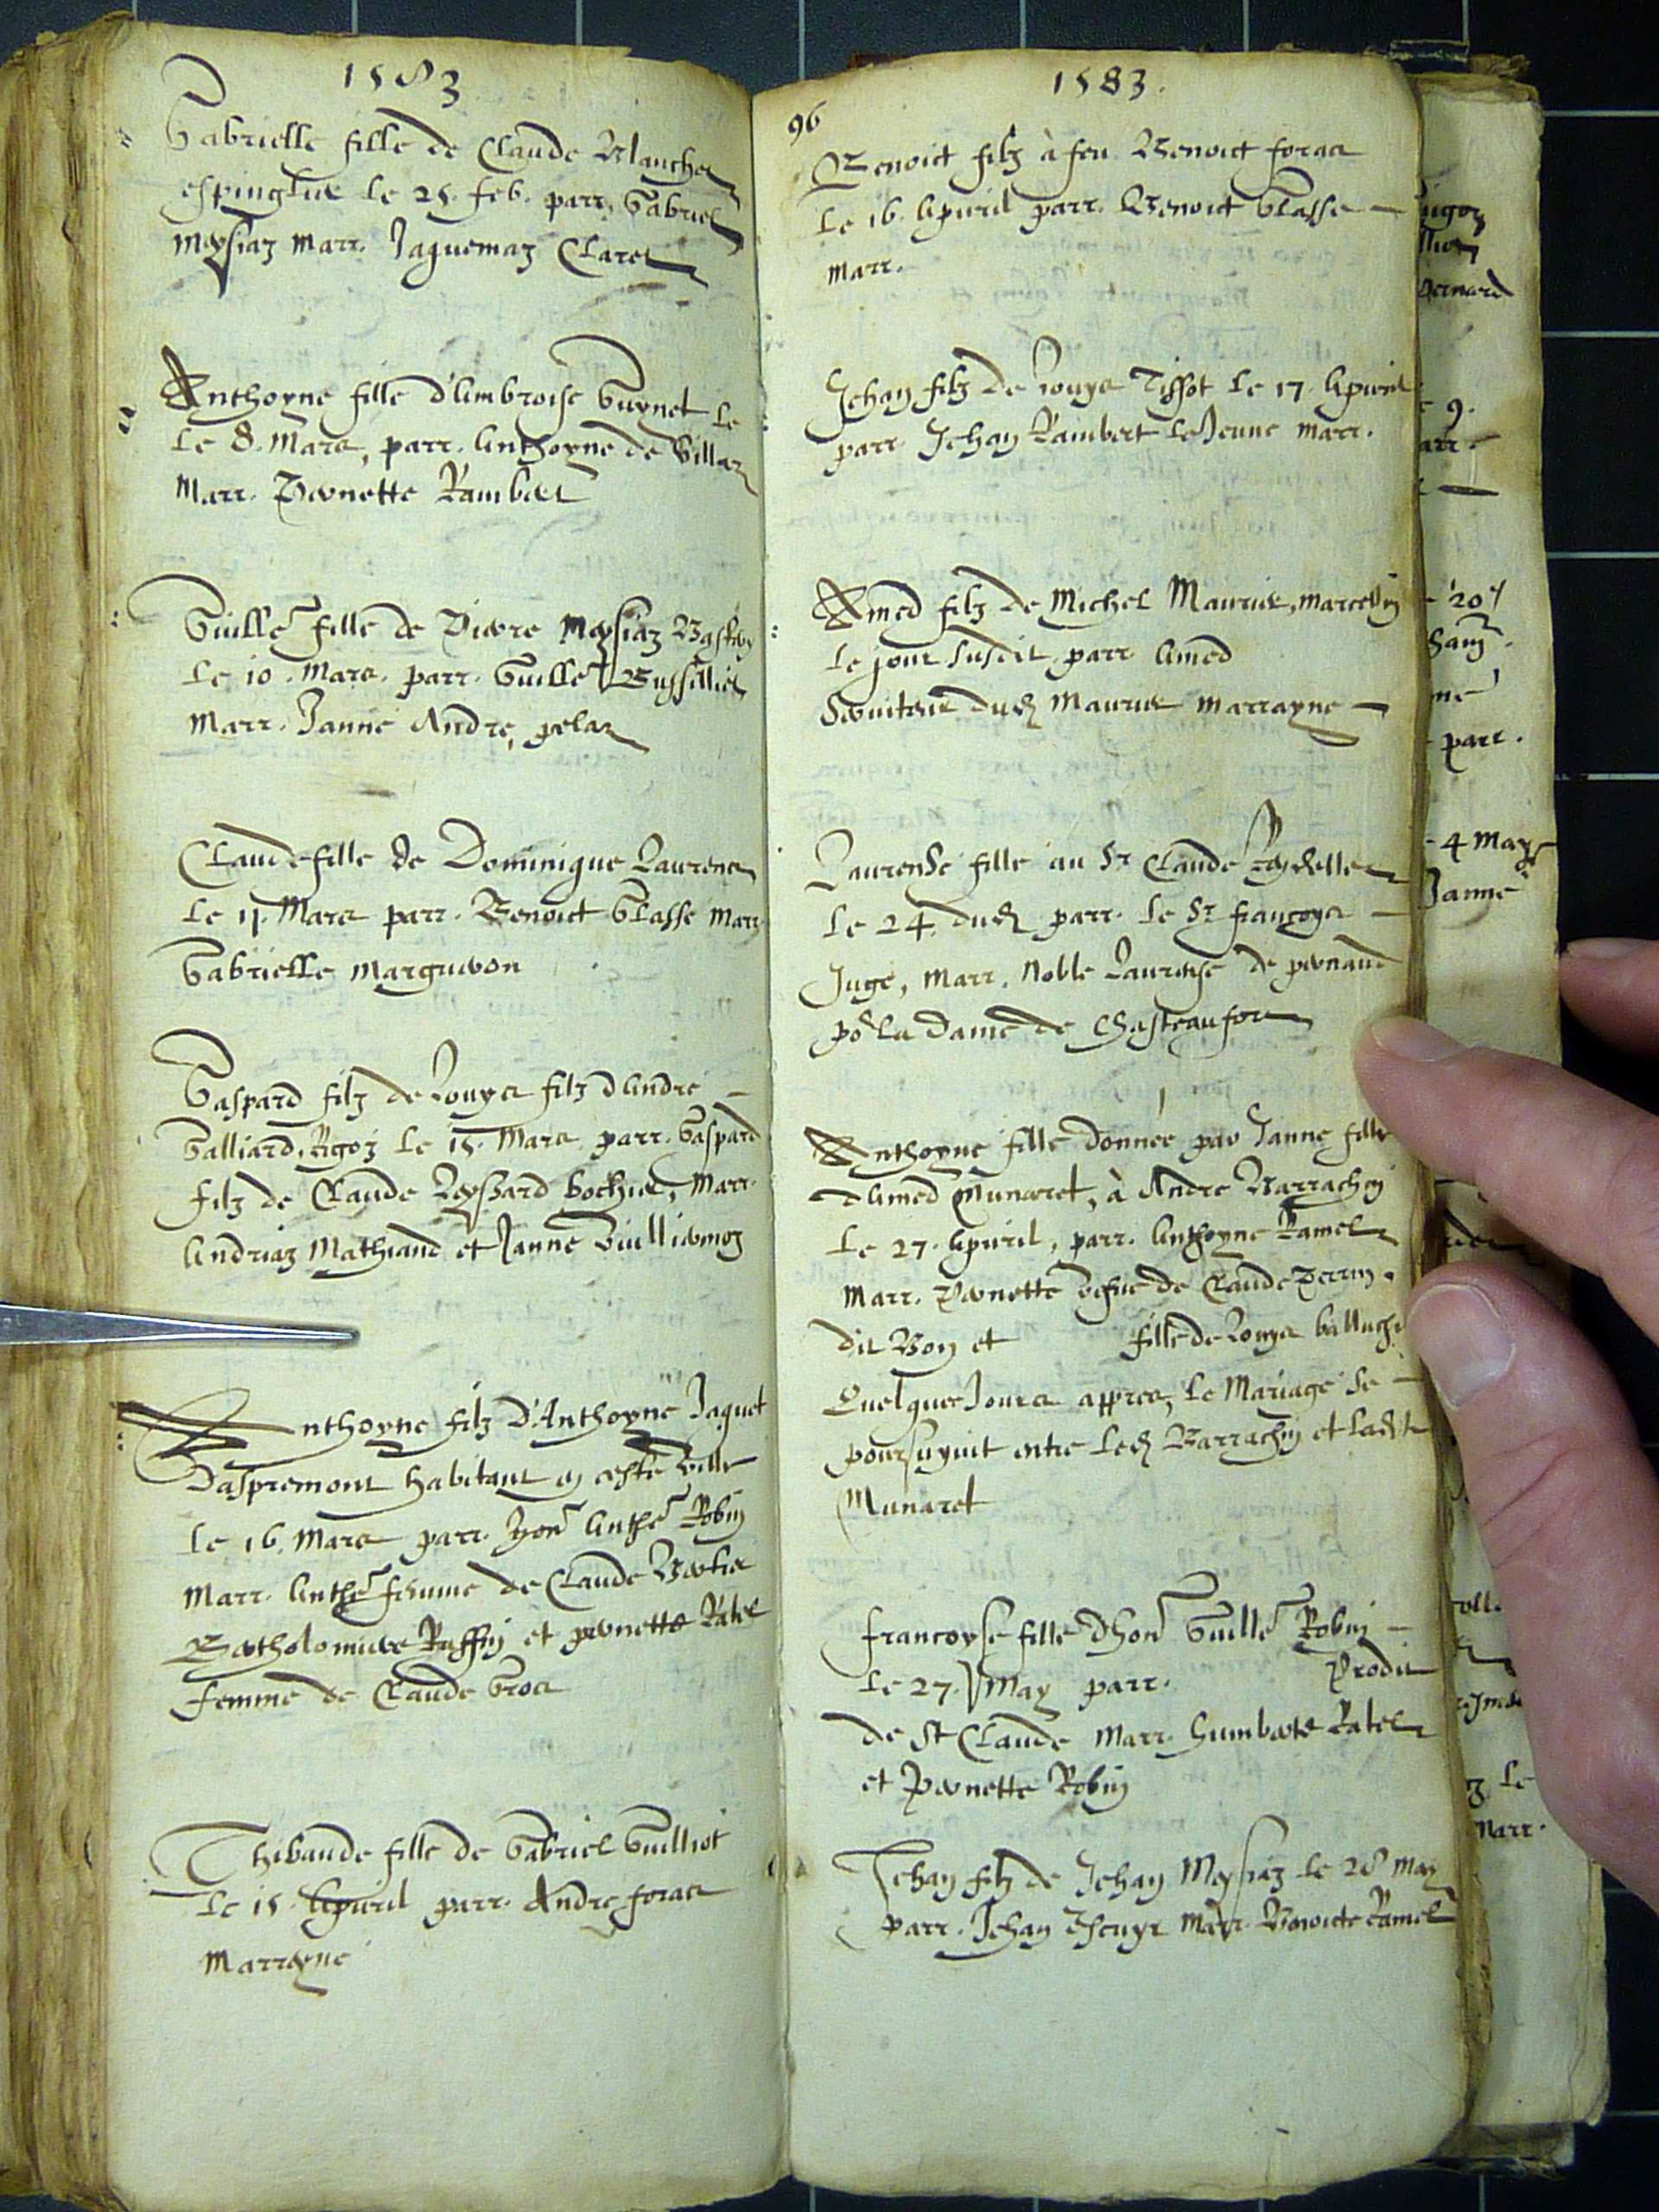 1583
Gabrielle fille de Claude Blanchet
espinglier le 25. feb. parr. Gabriel
Meyssiaz marr. Jaquemaz Claret
Anthoyne fille d'Ambroise Guynet le
le 8. Mars, parr. Anthoyne de Villaz
Marr. Pernette Rambert
Guille fille de Pierre Meyssiaz
le 10. Mars. parr. Guille
Marr. Janne Andre, pelaz
Claude fille de Dominique Laurens
le 11. Mars parr. Benoict Glasse Marr.
Gabrielle Margueron
Gaspard filz de Louys filz d'Andre
Galliard, Rigoz le 15. Mars parr. Gaspard
filz de Claude bochier, Marr.
Andriaz Mathiaud et Janne Vuilliermoz
Anthoyne filz d'Anthoyne Jaquet
d'aspremont habitant en ceste ville
le 16. Mars parr. hon Anthe Robin
Marr. Anthe femme de Claude
Bartholomiere Ruffin et pernette Ratel
femme de Claude Gros
Thibaude fille de Gabriel Guilliot
le 15. Apuril parr. Andre foras
Marrayne
96
1583.
Benoict filz à feu Benoict foras
le 16. Apuril parr. Benoict Glasse
marr.
Jehan filz de Louys Tissot le 17. Apuril
parr. Jehan Rambert le Jeune marr.
Amed filz de Michel Maurier, marcellin
le jour susdit parr Amed
Seruiteur dud Maurier marrayne
Laurense fille au Sr Claude Reydellet
le 24. dud parr. le Sr françoys
Juge, Marr. Noble Laurense de pernaud
po la Dame de Chasteaufort
Anthoyne fille donnée par Janne fille
d'Amed Munaret, à Andre Barrachin
le 27. Apuril, parr. Anthoyne Ramel
Marr. Pernette vefue de Claude Perrin.
dit Bon et fille de Louys
Quelques Jours appres, le Mariage se
poursuyuit entre led Barrachin et ladite
Munaret
françoyse fille d'hon Guille Robin
le 27. May parr. Prodit
de St Claude Marr. humberte Ratel
et Pernette Robin
Jehan filz de Jehan Meyssiaz le 28 May
parr. Jehan Escuyr Marr. Benoicte Ramel